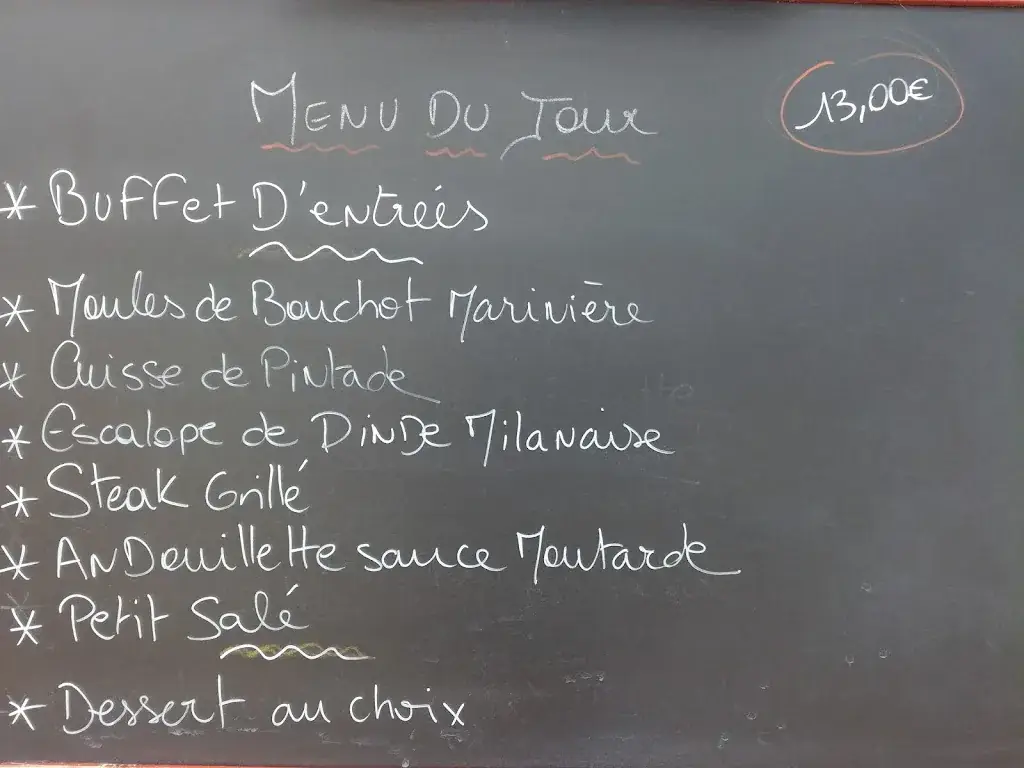 MENU DU JOUR
13,00€
* BUFFet D'entrées
* Moules de Bouchot Marinière
* Cuisse de Pintade
* Escalope de DINDe Milanaise
* Steak Grillé
* ANDouillette sauce Moutarde
* Petit Salé
* Dessert au choix